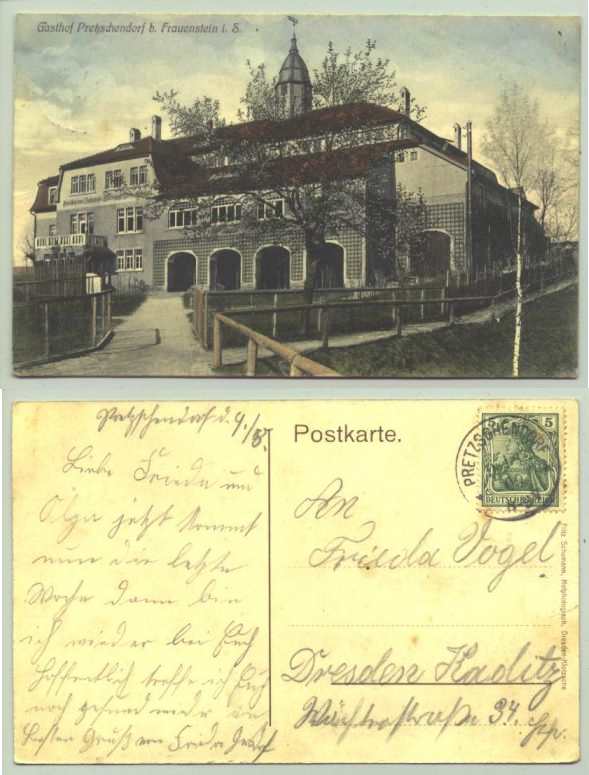 Gasthof Pretzschendorf b. Frauenstein i. S.
Pretzschendorf d. 4./5.
Liebe Frieda und
Olga jetzt kommt
nun die letzte
Woche dann bin
ich wieder bei Euch
Hoffentlich treffe ich Euch
noch gesund wieder an
Besten Gruß von
Postkarte.
PRETZSCHENDORF
5
DEUTSCHES REICH
An
Frieda Vogel
Dresden Kaditz
Wächterstraße 34.
Fritz Schumann, Dresden